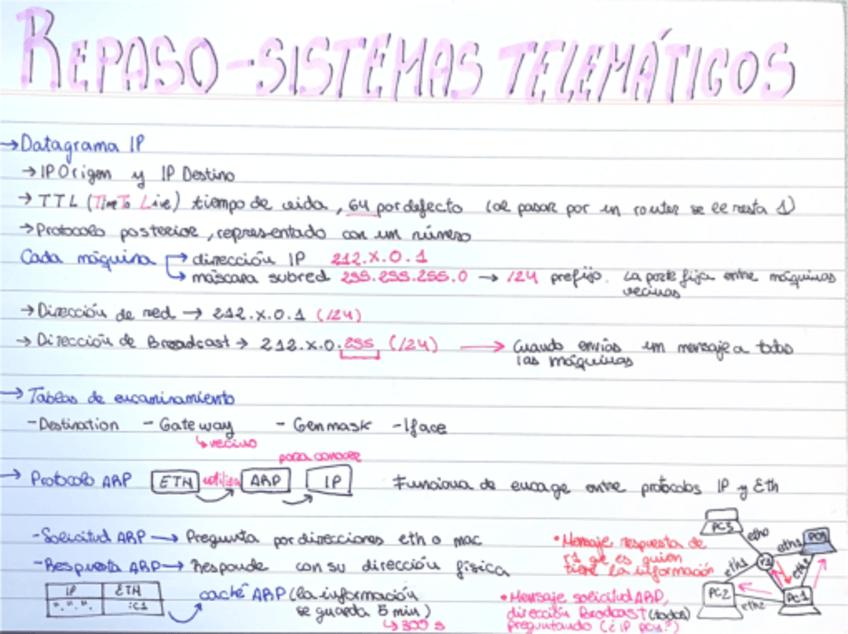 REPASO - SISTEMAS TELEMÁTICOS
→ Datagrama IP
→ IP Origen y IP Destino
→ TTL (Time To Live) tiempo de vida, 64 por defecto (al pasar por un router se le resta 1)
→ Protocolo posterior, representado con un número
Cada máquina → dirección IP 212.X.0.1
↳ máscara subred 255.255.255.0 → /24 prefijo. La parte fija entre máquinas vecinas
→ Dirección de red → 212.X.0.1 (/24)
→ Dirección de Broadcast → 212.X.0.255 (/24) → Cuando envías un mensaje a todas las máquinas
→ Tablas de encaminamiento
- Destination - Gateway - Genmask - Iface
↳ vecino
para conocer
→ Protocolo ARP ETH utiliza ARP IP Funciona de encage entre protocolos IP y Eth
- Solicitud ARP → Pregunta por direcciones eth o mac
- Respuesta ARP → Responde con su dirección física
IP ETH
".".". :C1
caché ARP (la información se guarda 5 min)
↳ 300 s
• Mensaje respuesta de r1 que es quien tiene la información
• Mensaje solicitud ARP, dirección Broadcast (todos) preguntando (¿IP
PC3
eth0
eth1
r1
PC2
eth2
PC1